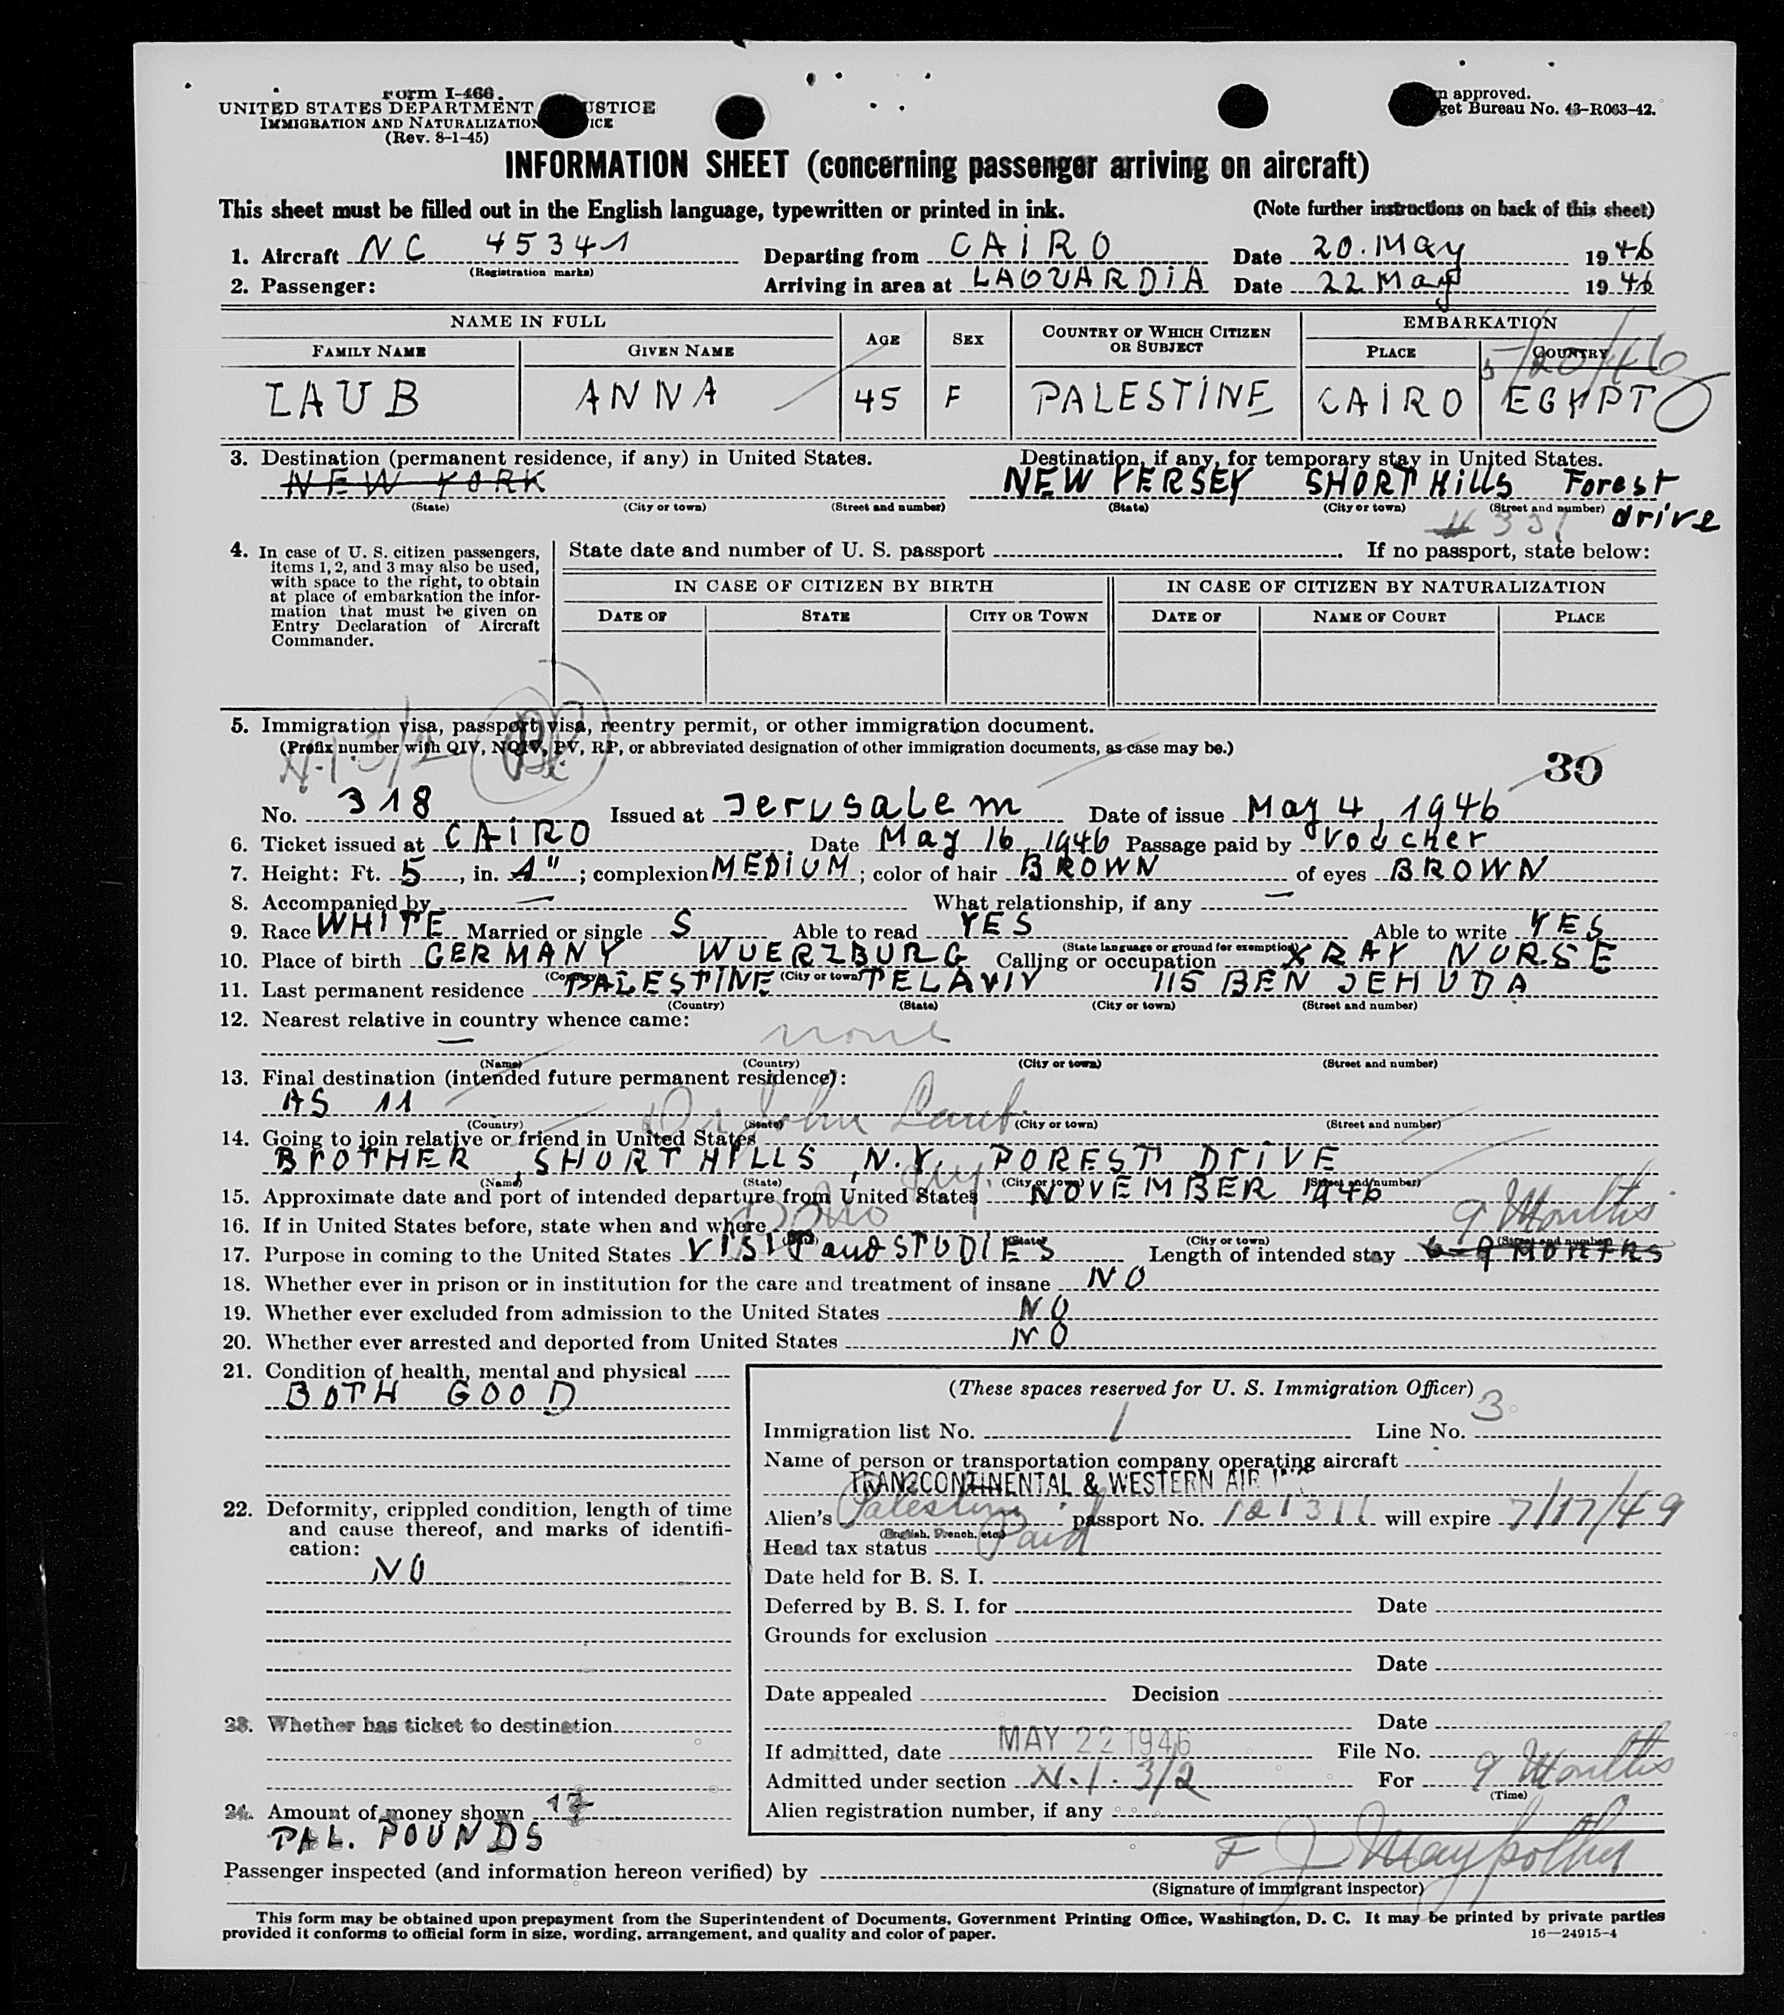 Form I-466.
UNITED STATES DEPARTMENT JUSTICE
IMMIGRATION AND NATURALIZATION
(Rev. 8-1-45)
approved.
Bureau No. 43-R063-42.
INFORMATION SHEET (concerning passenger arriving on aircraft)
This sheet must be filled out in the English language, typewritten or printed in ink. (Note further instructions on back of this sheet)
1. Aircraft NC 45341 Departing from CAIRO Date 20. May 1946
(Registration marks)
2. Passenger: Arriving in area at LAGUARDIA Date 22 May 1946
NAME IN FULL AGE SEX COUNTRY OF WHICH CITIZEN OR SUBJECT EMBARKATION
FAMILY NAME GIVEN NAME PLACE COUNTRY
5/20/46
LAUB ANNA 45 F PALESTINE CAIRO EGYPT
3. Destination (permanent residence, if any) in United States. Destination, if any, for temporary stay in United States.
NEW YORK NEW YERSEY SHORT HILLS Forest drive
(State) (City or town) (Street and number) (State) (City or town) (Street and number)
331
4. In case of U. S. citizen passengers, items 1, 2, and 3 may also be used, with space to the right, to obtain at place of embarkation the information that must be given on Entry Declaration of Aircraft Commander.
State date and number of U. S. passport . If no passport, state below:
IN CASE OF CITIZEN BY BIRTH IN CASE OF CITIZEN BY NATURALIZATION
DATE OF STATE CITY OR TOWN DATE OF NAME OF COURT PLACE
5. Immigration visa, passport visa, reentry permit, or other immigration document.
(Prefix number with QIV, NQIV, PV, RP, or abbreviated designation of other immigration documents, as case may be.)
N.I. 3/2
30
No. 318 Issued at Jerusalem Date of issue May 4, 1946
6. Ticket issued at CAIRO Date May 16, 1946 Passage paid by voucher
7. Height: Ft. 5, in. 1"; complexion MEDIUM; color of hair BROWN of eyes BROWN
8. Accompanied by — What relationship, if any —
9. Race WHITE Married or single S Able to read YES Able to write YES
(State language or ground for exemption)
10. Place of birth GERMANY WUERZBURG Calling or occupation XRAY NURSE
(Country) (City or town)
11. Last permanent residence PALESTINE TELAVIV 115 BEN JEHUDA
(Country) (State) (City or town) (Street and number)
12. Nearest relative in country whence came:
— none
(Name) (Country) (City or town) (Street and number)
13. Final destination (intended future permanent residence):
AS 11
(Country) (State) (City or town) (Street and number)
Dr John Laub
14. Going to join relative or friend in United States
BrOTHER, SHORT HILLS, N.Y. FOREST DriVE
(Name) (State) (City or town) (Street and number)
15. Approximate date and port of intended departure from United States NOVEMBER 1946
16. If in United States before, state when and where No
9 Months
(State) (City or town) (Street and number)
17. Purpose in coming to the United States VISIT and STUDIES Length of intended stay 6-9 MONTHS
18. Whether ever in prison or in institution for the care and treatment of insane NO
19. Whether ever excluded from admission to the United States NO
20. Whether ever arrested and deported from United States NO
21. Condition of health, mental and physical
BOTH GOOD
22. Deformity, crippled condition, length of time and cause thereof, and marks of identification:
NO
23. Whether has ticket to destination
24. Amount of money shown 17
PAL. POUNDS
(These spaces reserved for U. S. Immigration Officer)
Immigration list No. 1 Line No. 3
Name of person or transportation company operating aircraft
TRANSCONTINENTAL & WESTERN AIR
Alien's Palestine passport No. 121311 will expire 7/17/49
(English, French, etc.)
Head tax status Paid
Date held for B. S. I.
Deferred by B. S. I. for Date
Grounds for exclusion
Date
Date appealed Decision
Date
If admitted, date MAY 22 1946 File No.
Admitted under section N.I. 3/2 For 9 Months
(Time)
Alien registration number, if any
Passenger inspected (and information hereon verified) by
(Signature of immigrant inspector)
This form may be obtained upon prepayment from the Superintendent of Documents, Government Printing Office, Washington, D. C. It may be printed by private parties
provided it conforms to official form in size, wording, arrangement, and quality and color of paper. 16—24915-4